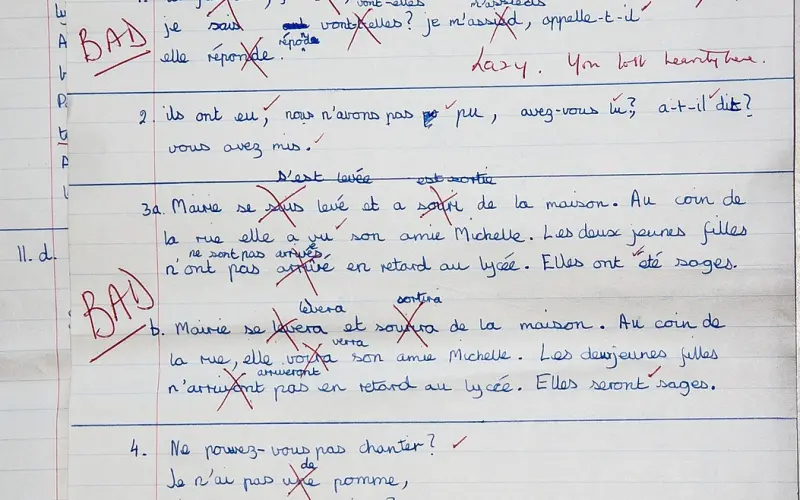 vont-elles m'assieds
BAD je sais vont-elles? je m'assied, appelle-t-il
répond
elle réponde.
Lazy. You lost
2. ils ont eu, nous n'avons pas pu, avez-vous lu?, a-t-il dit?
vous avez mis.
s'est levée est sortie
3a. Mairie se sais levé et a sorti de la maison. Au coin de
la rue elle a vu son amie Michelle. Les deux jeunes filles
ne sont pas arrivés
n'ont pas arrivé en retard au lycée. Elles ont été sages.
BAD
lèvera sortira
b. Mairie se levera et de la maison. Au coin de
verra
la rue, elle voira son amie Michelle. Les deux jeunes filles
arriveront
n'arrivont pas en retard au lycée. Elles seront sages.
11.d.
4. Ne pouvez-vous pas chanter?
de
Je n'ai pas une pomme,